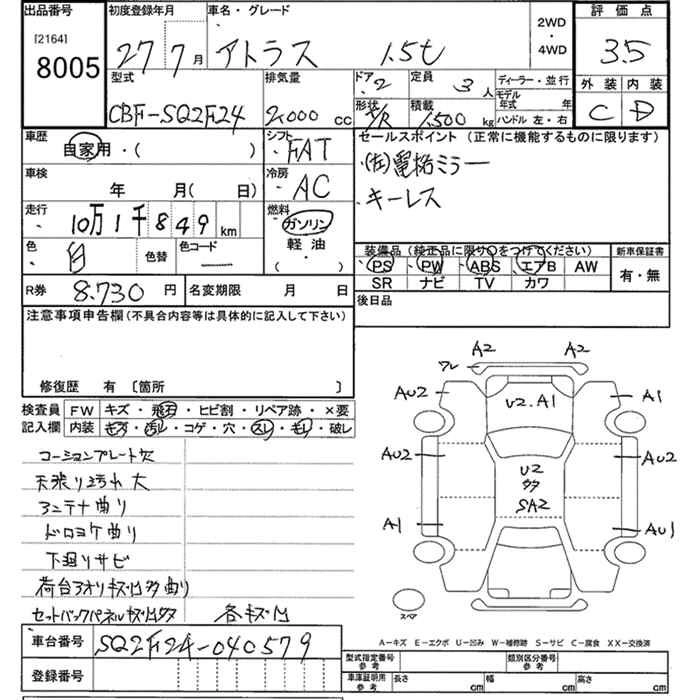 出品番号 初度登録年月 車名・グレード 評価点
[2164]
8005
27 7月 アトラス 1.5t 2WD・4WD 3.5
型式 排気量 ドア 2 定員 3人 ディーラー・並行 外装 内装
モデル年式 年
CBF-SQ2F24 2,000cc 形状 積載 1,500kg ハンドル 左・右 C D
車歴 シフト セールスポイント (正常に機能するものに限ります)
自家用・( ) FAT (左)電格ミラー
車検 冷房 キーレス
年 月( 日) AC
走行 燃料
10万1千849km ガソリン
色 白 色替 色コード ー 軽油 装備品 (純正品に限り○をつけてください) 新車保証書
・( ) PS PW ABS エアB AW 有・無
R券 8,730円 名変期限 月 日 SR ナビ TV カワ
注意事項申告欄(不具合内容等は具体的に記入して下さい) 後日品
修復歴 有 [箇所 ]
検査員 FW キズ・飛石・ヒビ割・リペア跡・×要
記入欄 内装 キズ・汚レ・コゲ・穴・スレ・モレ・破レ
コーションプレート欠
天張り汚れ大
アンテナ曲り
ドロヨケ曲り
下廻りサビ
荷台アオリキズ凹多曲り
セットバックパネルキズ凹多 各キズ凹
車台番号 SQ2F24-040579
登録番号
A2 A2
ワレ
AU2 U2.A1 A1
AU2 U2 AU2
多
SA2
A1 AU1
スペア
A−キズ E−エクボ U−凹み W−補修跡 S−サビ C−腐食 XX−交換済
型式指定番号 参考 類別区分番号 参考
車庫証明用 参考 長さ cm 幅 cm 高さ cm